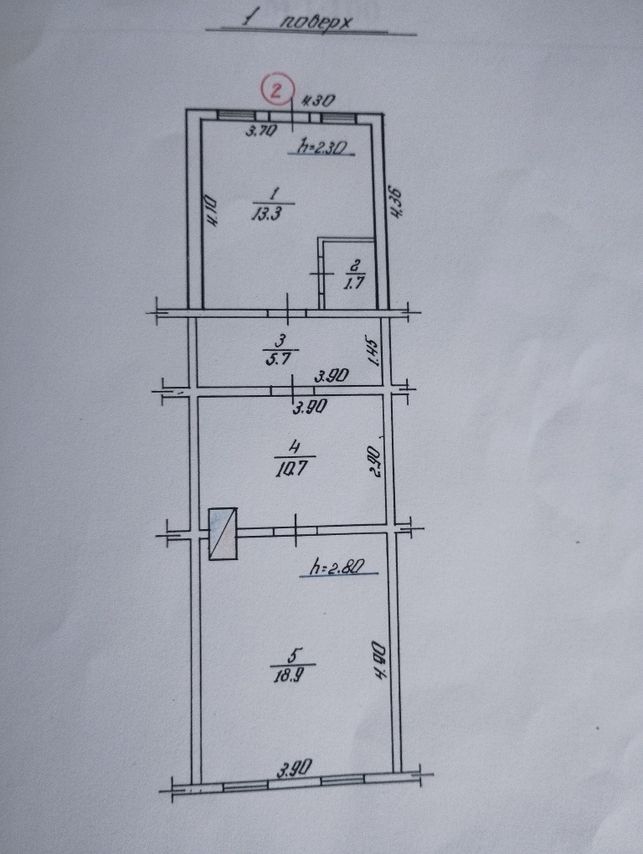 1 поверх
2
4.30
3.70
h=2.30
1
13.3
4.10
4.36
2
1.7
3
5.7
1.45
3.90
3.90
4
10.7
2.90
h=2.80
5
18.9
4.90
3.90